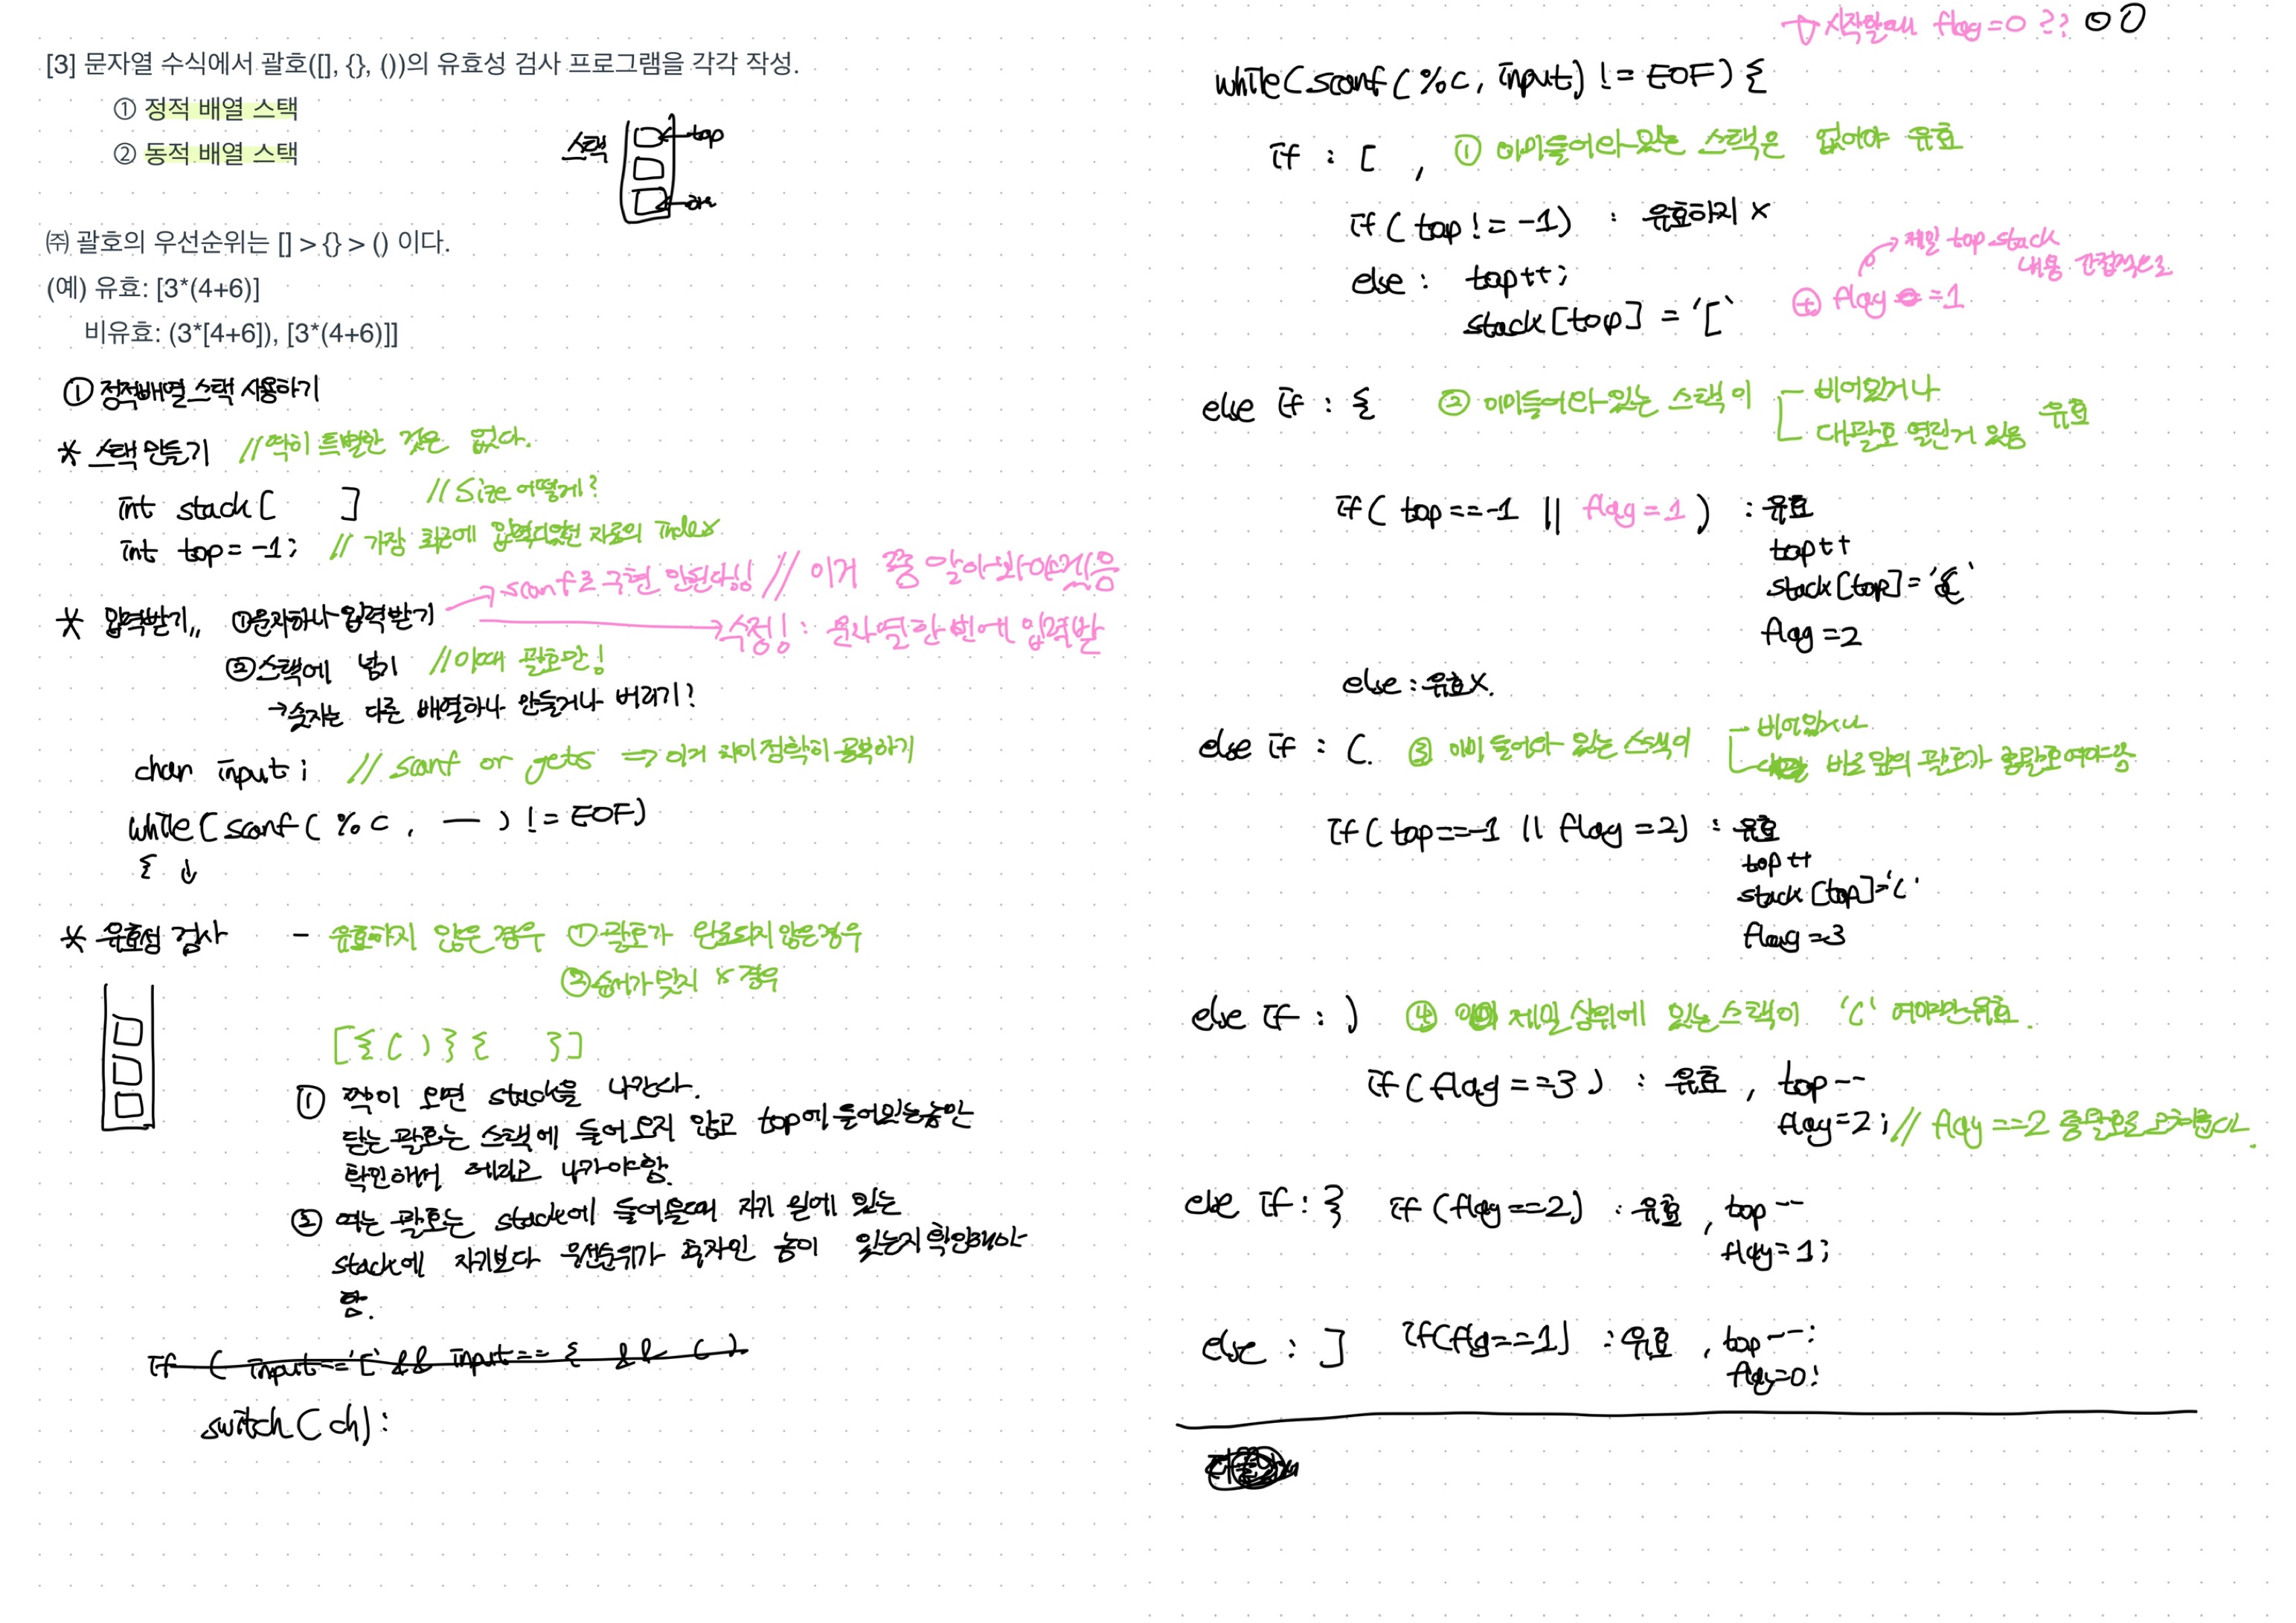 [3] 문자열 수식에서 괄호([], {}, ())의 유효성 검사 프로그램을 각각 작성.
① 정적 배열 스택
② 동적 배열 스택
스택
top
㈜ 괄호의 우선순위는 [] > {} > () 이다.
(예) 유효: [3*(4+6)]
비유효: (3*[4+6]), [3*(4+6)]]
① 정적배열 스택 사용하기
* 스택 만들기 //딱히 특별한 것은 없다.
int stack[ ] // Size 어떻게?
int top = -1; // 가장 최근에 입력되었던 자료의 index
* 입력받기,, ①문자하나 입력받기 → scanf로 구현 안된다!! // 이거 쫌 알아봐야겠음
→ 수정!: 문자열 한번에 입력받
②스택에 넣기 //이때 괄호만!
→ 숫자는 다른 배열하나 만들거나 버리기?
char input; // scanf or gets ⇒ 이거 차이 정확히 공부하기
while( scanf( %c, — ) != EOF)
{ ↓
* 유효성 검사 - 유효하지 않은 경우 ① 괄호가 완료되지 않은경우
②순서가 맞지 x 경우
[ { ( ) } { } ]
① 짝이 오면 stack을 나간다.
닫는 괄호는 스택에 들어오지 않고 top에 들어있는놈만
확인해서 데리고 나가야함.
② 여는 괄호는 stack에 들어올때 자기 밑에 있는
stack에 자기보다 우선순위가 후자인 놈이 있는지 확인해야
함.
if ( input=='[' && input == { && ( )
switch( ch):
시작할때 flag=0 ?? 00
while( scanf( %c, input) != EOF) {
if : [ , ① 이미들어와있는 스택은 없어야 유효
if( top != -1) : 유효하지 x
else : top++;
stack[top] = '['
⊕ flag =1
→ 제일 top stack
내용 간접적으로
else if : { ② 이미들어와있는 스택이 비어있거나
대괄호 열린거 있음 유효
if( top==-1 || flag=1 ) : 유효
top++
stack[top]='{'
flag=2
else : 유효x.
else if : (. ③ 이미 들어와 있는 스택이 비어있거나
바로 앞의 괄호가 중괄호여야
if( top==-1 || flag=2) : 유효
top++
stack[top]='('
flag=3
else if : ) ④ 제일 상위에 있는 스택이 '(' 여야만 유효.
if( flag==3 ) : 유효 , top--
flag=2; // flag==2 중괄호로
else if : } if (flag==2) : 유효 , top--
flag=1;
else : ] if(flag==1) : 유효 , top--;
flag=0;